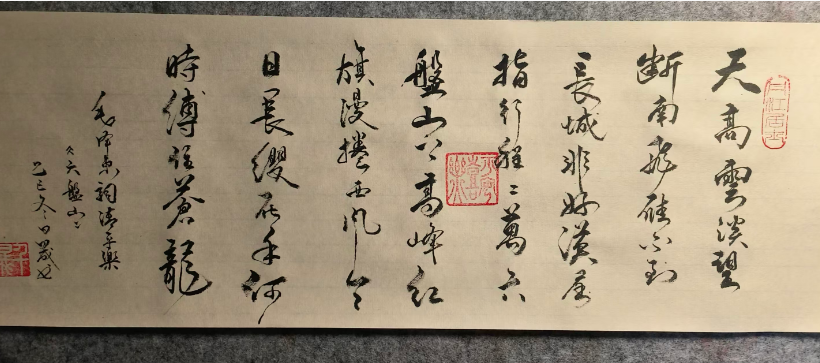 天高雲淡望
断南飛雁不到
長城非好漢屈
指行程二萬六
盤山上高峰红
旗漫捲西风今
日長纓在手何
時縛住蒼龍
毛泽东詞清平樂
六盤山
乙巳冬日